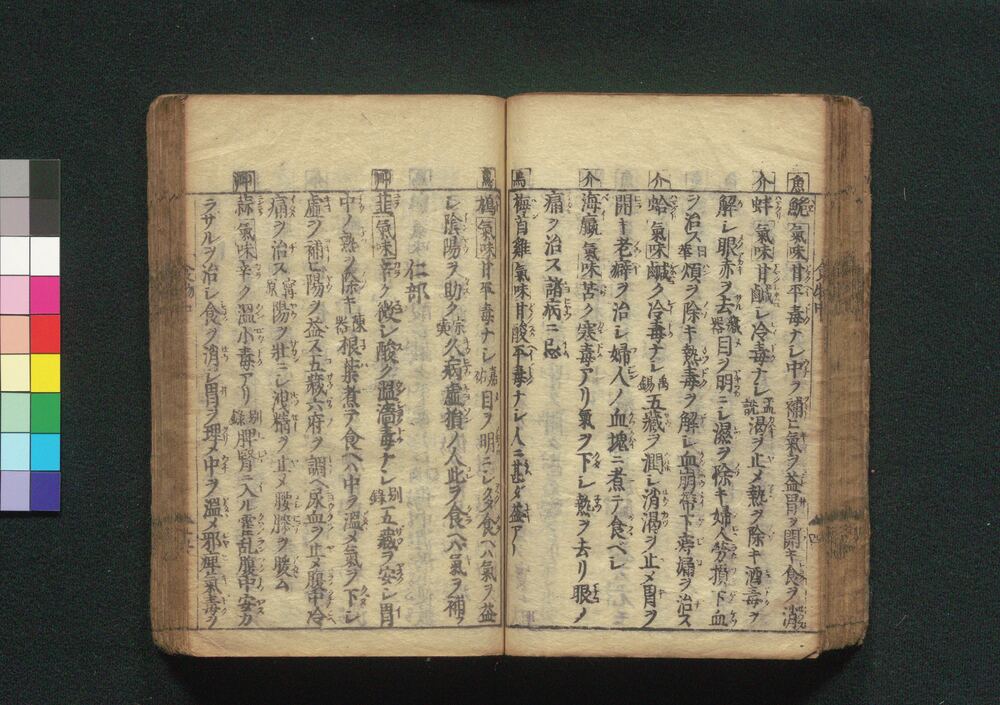 魚 鮸 氣味甘平毒ナシ中ヲ補ヒ氣ヲ益胃ヲ開キ食ヲ消ス
介 蚌 氣味甘鹹シ冷毒ナシ 孟詵 渇ヲ止メ熱ヲ除キ酒毒ヲ
解シ眼赤ヲ去 藏器 目ヲ明ニシ濕ヲ除キ婦人勞損下血
ヲ治ス 日華 煩ヲ除キ熱毒ヲ解シ血崩帶下痔瘻ヲ治ス
介 蛤 氣味鹹ク冷毒ナシ 禹錫 五藏ヲ潤シ消渇ヲ止メ胃ヲ
開キ老癖ヲ治シ婦人ノ血塊ニ煮テ食ベシ
介 海蠃 氣味苦ク寒毒アリ氣ヲ下シ熱ヲ去リ眼ノ
痛ヲ治ス諸病ニ忌
鳥 梅首雞 氣味甘酸平毒ナシ人ニ甚ダ益アリ
鳥 鴆 氣味甘平毒ナシ 嘉祐 目ヲ明ニシ久ク食ヘバ氣ヲ益
シ陰陽ヲ助ク 宗奭 久病虚損ノ人此ヲ食ヘバ氣ヲ補フ
仁部
艸 韭 氣味辛ク微シ酸ク温濇毒ナシ 別錄 五藏ヲ安シ胃
中ノ熱ヲ除キ 藏器 根葉煮テ食ヘバ中ヲ温メ氣ヲ下シ
虚ヲ補ヒ陽ヲ益ス五藏六府ヲ調ヘ尿血ヲ止メ腹中冷
痛ヲ治ス 寗原 陽ヲ壯ニシ洩精ヲ止メ腰膝ヲ暖ム
艸 蒜 氣味辛ク温小毒アリ 別錄 脾腎ニ入ル霍乱腹中安カ
ラサルヲ治シ食ヲ消シ胃ヲ理メ中ヲ温メ邪痺氣毒ヲ